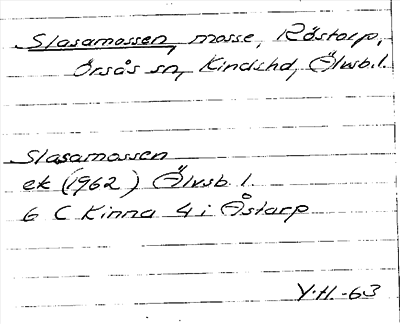 Slasamossen, mosse, Röstorp,
Örsås sn, Kinds hd, Älvsb. l.
Slasamossen
ek (1962) Älvsb. l.
6 C Kinna 4 i Åstarp
Y.H.-63